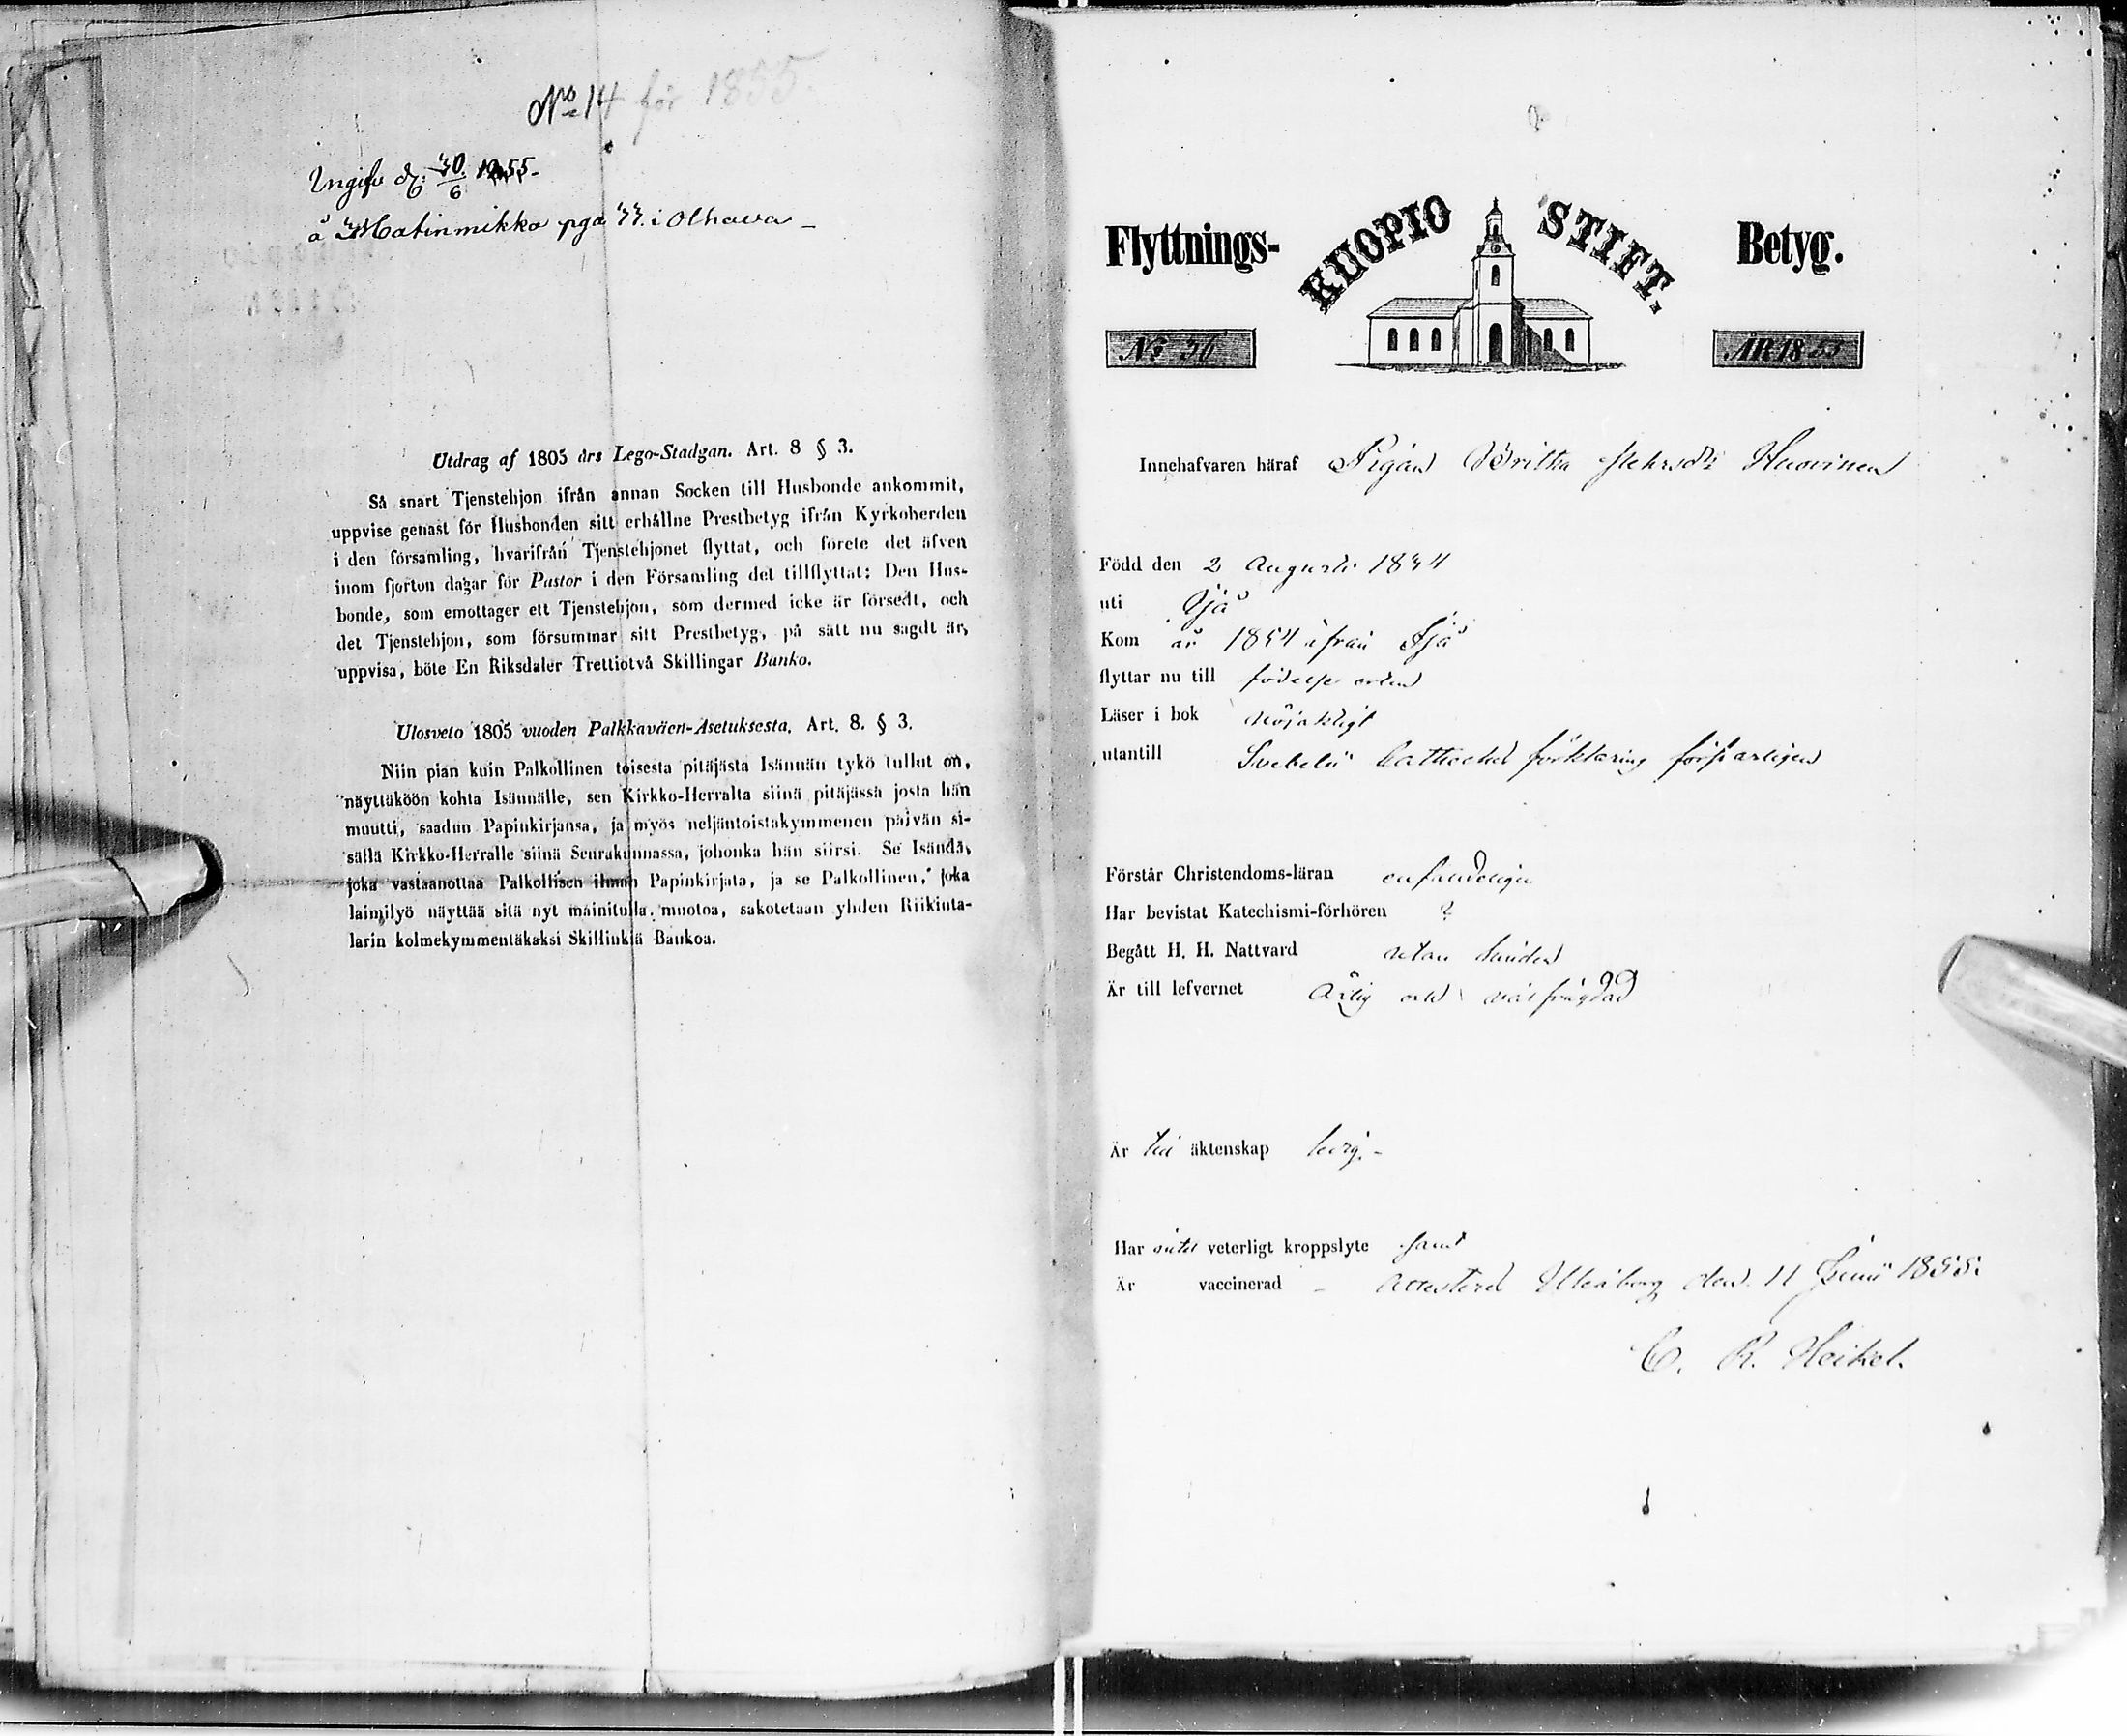 No 14 för 1855.
Ingifv d. 30/6 1855.
å Matinmikko pga 33. i Olhava –
Utdrag af 1805 års Lego-Stadgan. Art. 8 § 3.
Så snart Tjenstehjon ifrån annan Socken till Husbonde ankommit,
uppvise genast för Husbonden sitt erhållne Prestbetyg ifrån Kyrkoherden
i den församling, hvarifrån Tjenstehjonet flyttat, och förete det äfven
inom fjorton dagar för Pastor i den Församling det tillflyttat; Den Hus-
bonde, som emottager ett Tjenstehjon, som dermed icke är försedt, och
det Tjenstehjon, som försummar sitt Prestbetyg, på sätt nu sagdt är,
uppvisa, böte En Riksdaler Trettiotvå Skillingar Banko.
Ulosveto 1805 vuoden Palkkaväen-Asetuksesta, Art. 8. § 3.
Niin pian kuin Palkollinen toisesta pitäjästä Isännän tykö tullut on,
näyttäköön kohta Isännälle, sen Kirkko-Herralta siinä pitäjässä josta hän
muutti, saadun Papinkirjansa, ja myös neljäntoistakymmenen päivän si-
sällä Kirkko-Herralle siinä Seurakunnassa, johonka hän siirsi. Se Isändä,
joka vastaanottaa Palkollisen ilman Papinkirjata, ja se Palkollinen, joka
laimilyö näyttää sitä nyt mainitulla muotoa, sakotetaan yhden Riikinta-
larin kolmekymmentäkaksi Skillinkiä Bankoa.
Flyttnings- KUOPIO STIFT. Betyg.
No 36 ÅR 1855
Innehafvaren häraf Pigan Britha Huovinen
Född den 2 Augusti 1834
uti Ijå
Kom år 1854 ifrån Ijå
flyttar nu till födelse orten
Läser i bok nöjaktigt
utantill Svebelii förklaring försvarligen
Förstår Christendoms-läran enfaldeligen
Har bevistat Katechismi-förhören ?
Begått H. H. Nattvard utan hinder
Är till lefvernet Ärlig och välfrägdad
Är till äktenskap ledig. –
Har intet veterligt kroppslyte samt
Är vaccinerad – Attesterar Uleåborg den 11 Junii 1855.
C. R. Heikel.